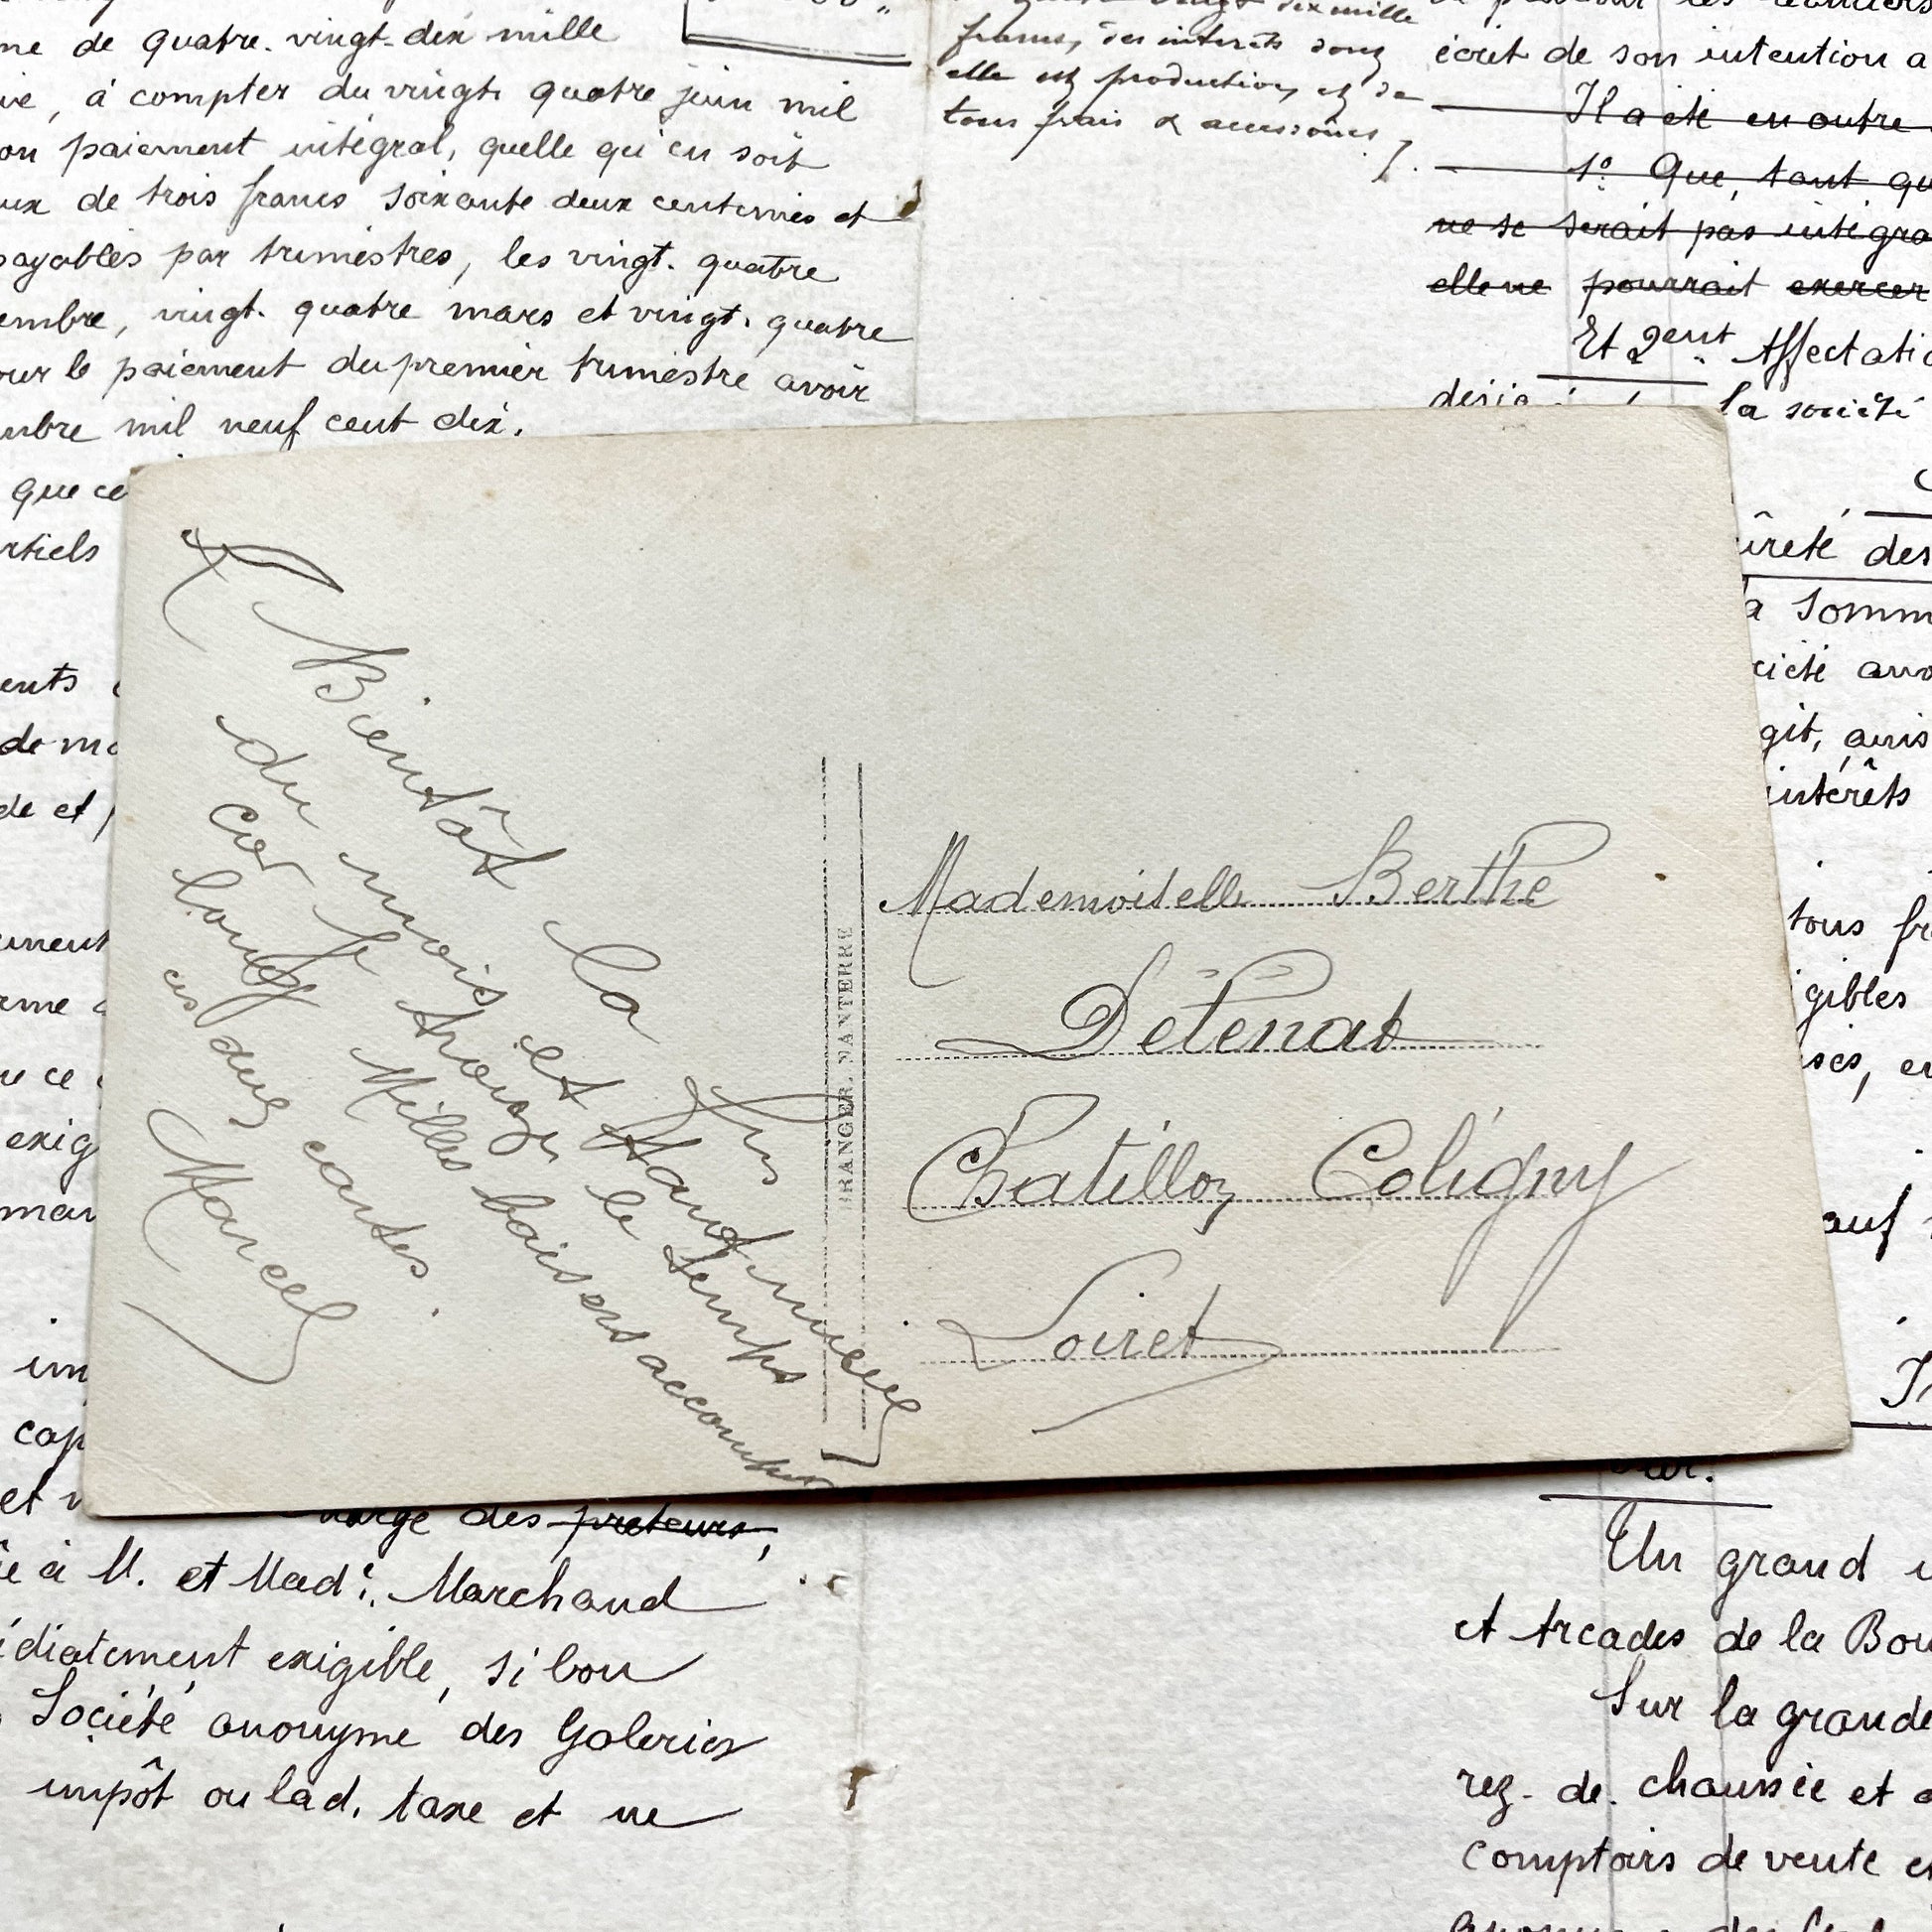 me de quatre. vingt-dix mille
à compter du vingt. quatre juin mil
paiement intégral, quelle qu'en soit
ux de trois francs soixante deux centimes et
payables par trimestres, les vingt. quatre
embre, vingt. quatre mars et vingt. quatre
our le paiement du premier trimestre avoir
mbre mil neuf cent dix.
que ce
rtiels
ents
de et
exig
cap
et
des preteurs,
à M. et Mad.e Marchand
édiatement exigible, si bon
Société anonyme des Galeries
impôt ou lad. taxe et ne
dix mille
francs, des intérêts dont
elle est production, et de
tous frais & accessoires
écrit de son intention
Il a été en outre
1° Que, tant qu
ne se serait pas intégra
elle ne pourrait exercer
Et 2ent Affectatio
la société
ûreté des
la somm
ciété
git,
intérêts
tous fr
gibles
auf
Un grand
et Arcades de la Bou
Sur la grande
rez. de. chaussée et
comptoirs de vente et
A Bientôt la fin
du mois et Haut mieux
car je trouve le temps
long Milles baisers
ces deux cartes.
Marcel
BRANGER, NANTERRE
Mademoiselle Berthe
Détenat
Chatillon Coligny
Loiret